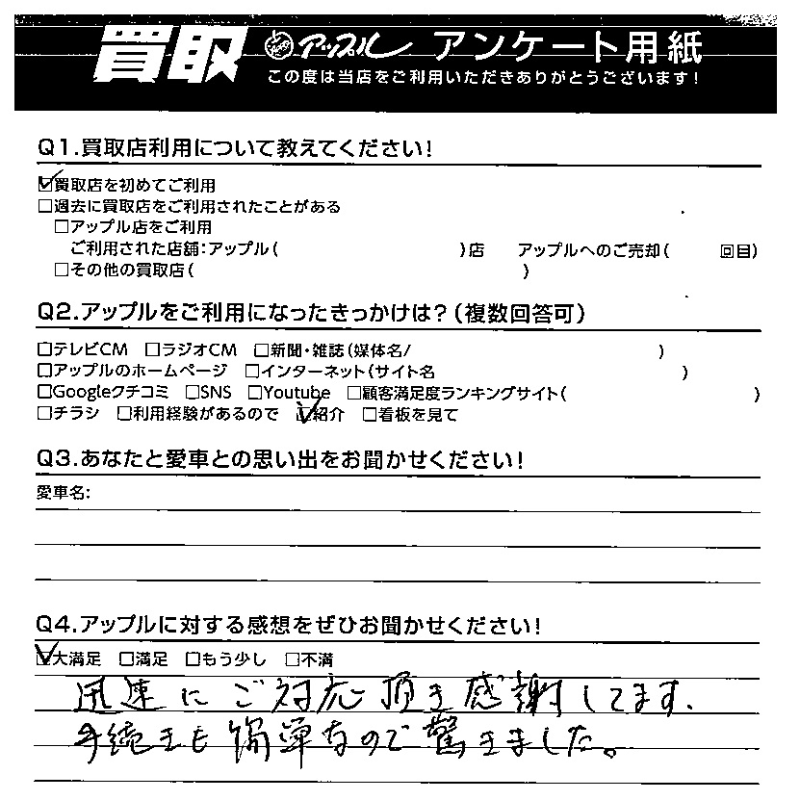 買取 アップル アンケート用紙
この度は当店をご利用いただきありがとうございます!
Q1.買取店利用について教えてください!
☑買取店を初めてご利用
□過去に買取店をご利用されたことがある
□アップル店をご利用
ご利用された店舗:アップル( )店 アップルへのご売却( 回目)
□その他の買取店( )
Q2.アップルをご利用になったきっかけは?(複数回答可)
□テレビCM □ラジオCM □新聞・雑誌(媒体名/ )
□アップルのホームページ □インターネット(サイト名 )
□Googleクチコミ □SNS □Youtube □顧客満足度ランキングサイト( )
□チラシ □利用経験があるので ☑紹介 □看板を見て
Q3.あなたと愛車との思い出をお聞かせください!
愛車名:
Q4.アップルに対する感想をぜひお聞かせください!
☑大満足 □満足 □もう少し □不満
迅速にご対応頂き感謝してます.
手続きも簡単なので驚きました。